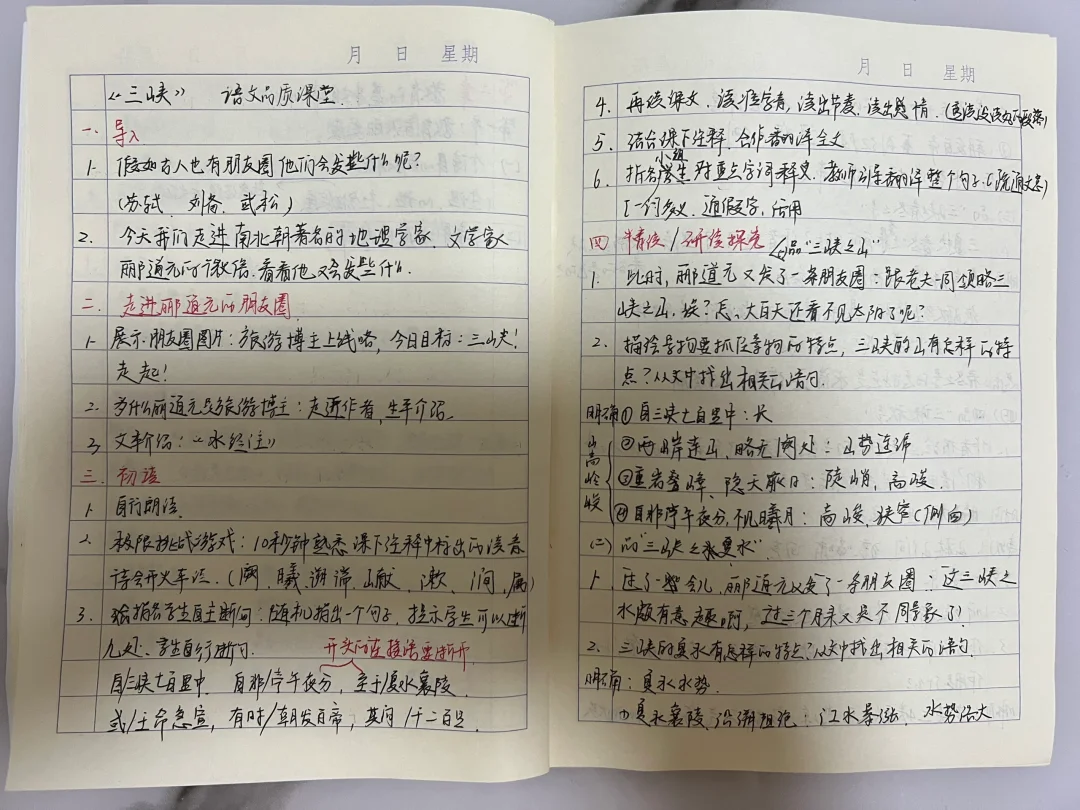 月 日 星期
《三峡》 语文品质课堂
一. 导入
1. 假如古人也有朋友圈他们会发些什么呢?
(苏轼 刘备 武松)
2. 今天我们走进南北朝著名的地理学家、文学家
郦道元的微信.看看他又会发些什么.
二. 走进郦道元的朋友圈
1. 展示朋友圈图片:旅游博主上线咯,今日目标:三峡!
走起!
2. 为什么郦道元是旅游博主:走近作者,生平介绍.
3. 文本介绍:《水经注》
三. 初读
1. 自行朗读.
2. 极限挑战游戏:10秒钟熟悉课下注释中标出的读音
请会开火车读.(阙 曦 溯 漱 涧 属)
3. 指名学生自主断句:随机指出一个句子,提示学生可以断
几处、学生自行断句. 开头的连接语要断开
自/三峡七百里中. 自非/亭午夜分,至于/夏水襄陵.
或/王命急宣,有时/朝发白帝,其间/千二百里.
月 日 星期
4. 再读课文.读准字音,读出节奏,读出感情.
5. 结合课下注释,合作翻译全文
6. 指名小组学生对重点字词释义,教师引导翻译整个句子.(疏通文意)
[一词多义、通假字、活用
四 精读/研读探究 (一)品“三峡之山”
1. 此时,郦道元又发了一条朋友圈:跟老夫一同领略三
峡之山,咦?怎么大白天还看不见太阳了呢?
2. 描绘景物要抓住景物的特点,三峡的山有怎样的特
点?从文中找出相关语句.
明确①自三峡七百里中:长
山高岭峻
②两岸连山,略无阙处:山势连绵
③重岩叠嶂、隐天蔽日:陡峭,高峻.
④自非亭午夜分,不见曦月:高峻、狭窄(侧面)
(二)品“三峡之夏水”
1. 过了一会儿,郦道元又发了一条朋友圈:这三峡之
水颇有意趣啊,过三个月来又是不同景象了!
2. 三峡的夏水有怎样的特点?从文中找出相关的语句
明确:夏水水势
①夏水襄陵,沿溯阻绝:江水暴涨、水势浩大